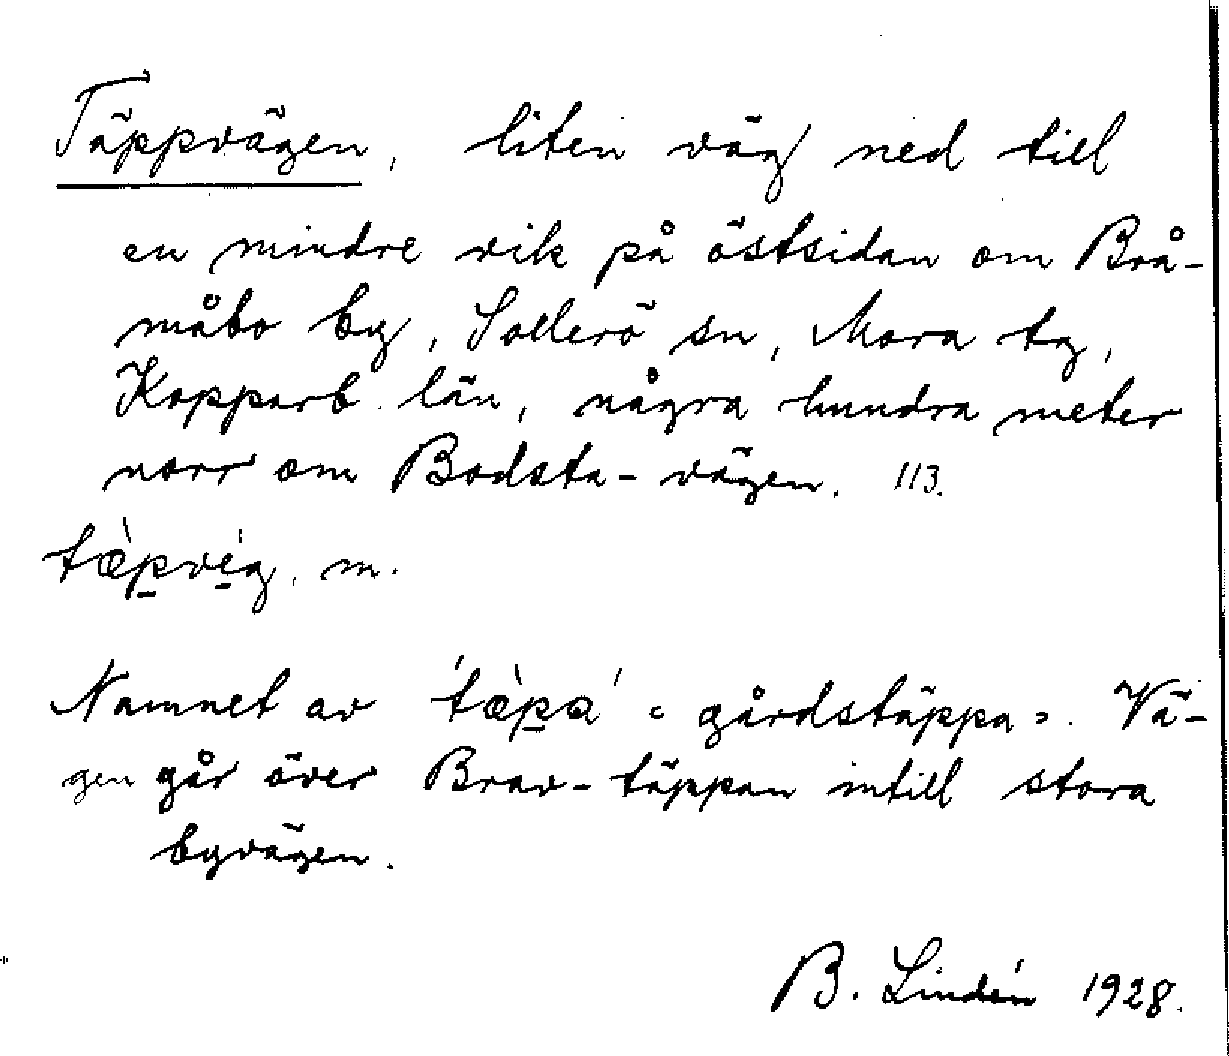 Täppvägen, liten väg ned till
en mindre vik på östsidan om Brå-
måbo by, Sollerö sn, Mora tg,
Kopparb. län, några hundra meter
norr om Bodsta-vägen. 113.
tæ̀p̲vé̲g, m.
Namnet av ′tæ̀p̲a′ «gårdstäppa». Vä-
gen går över Brav-täppan intill stora
byvägen.
B. Lindén 1928.